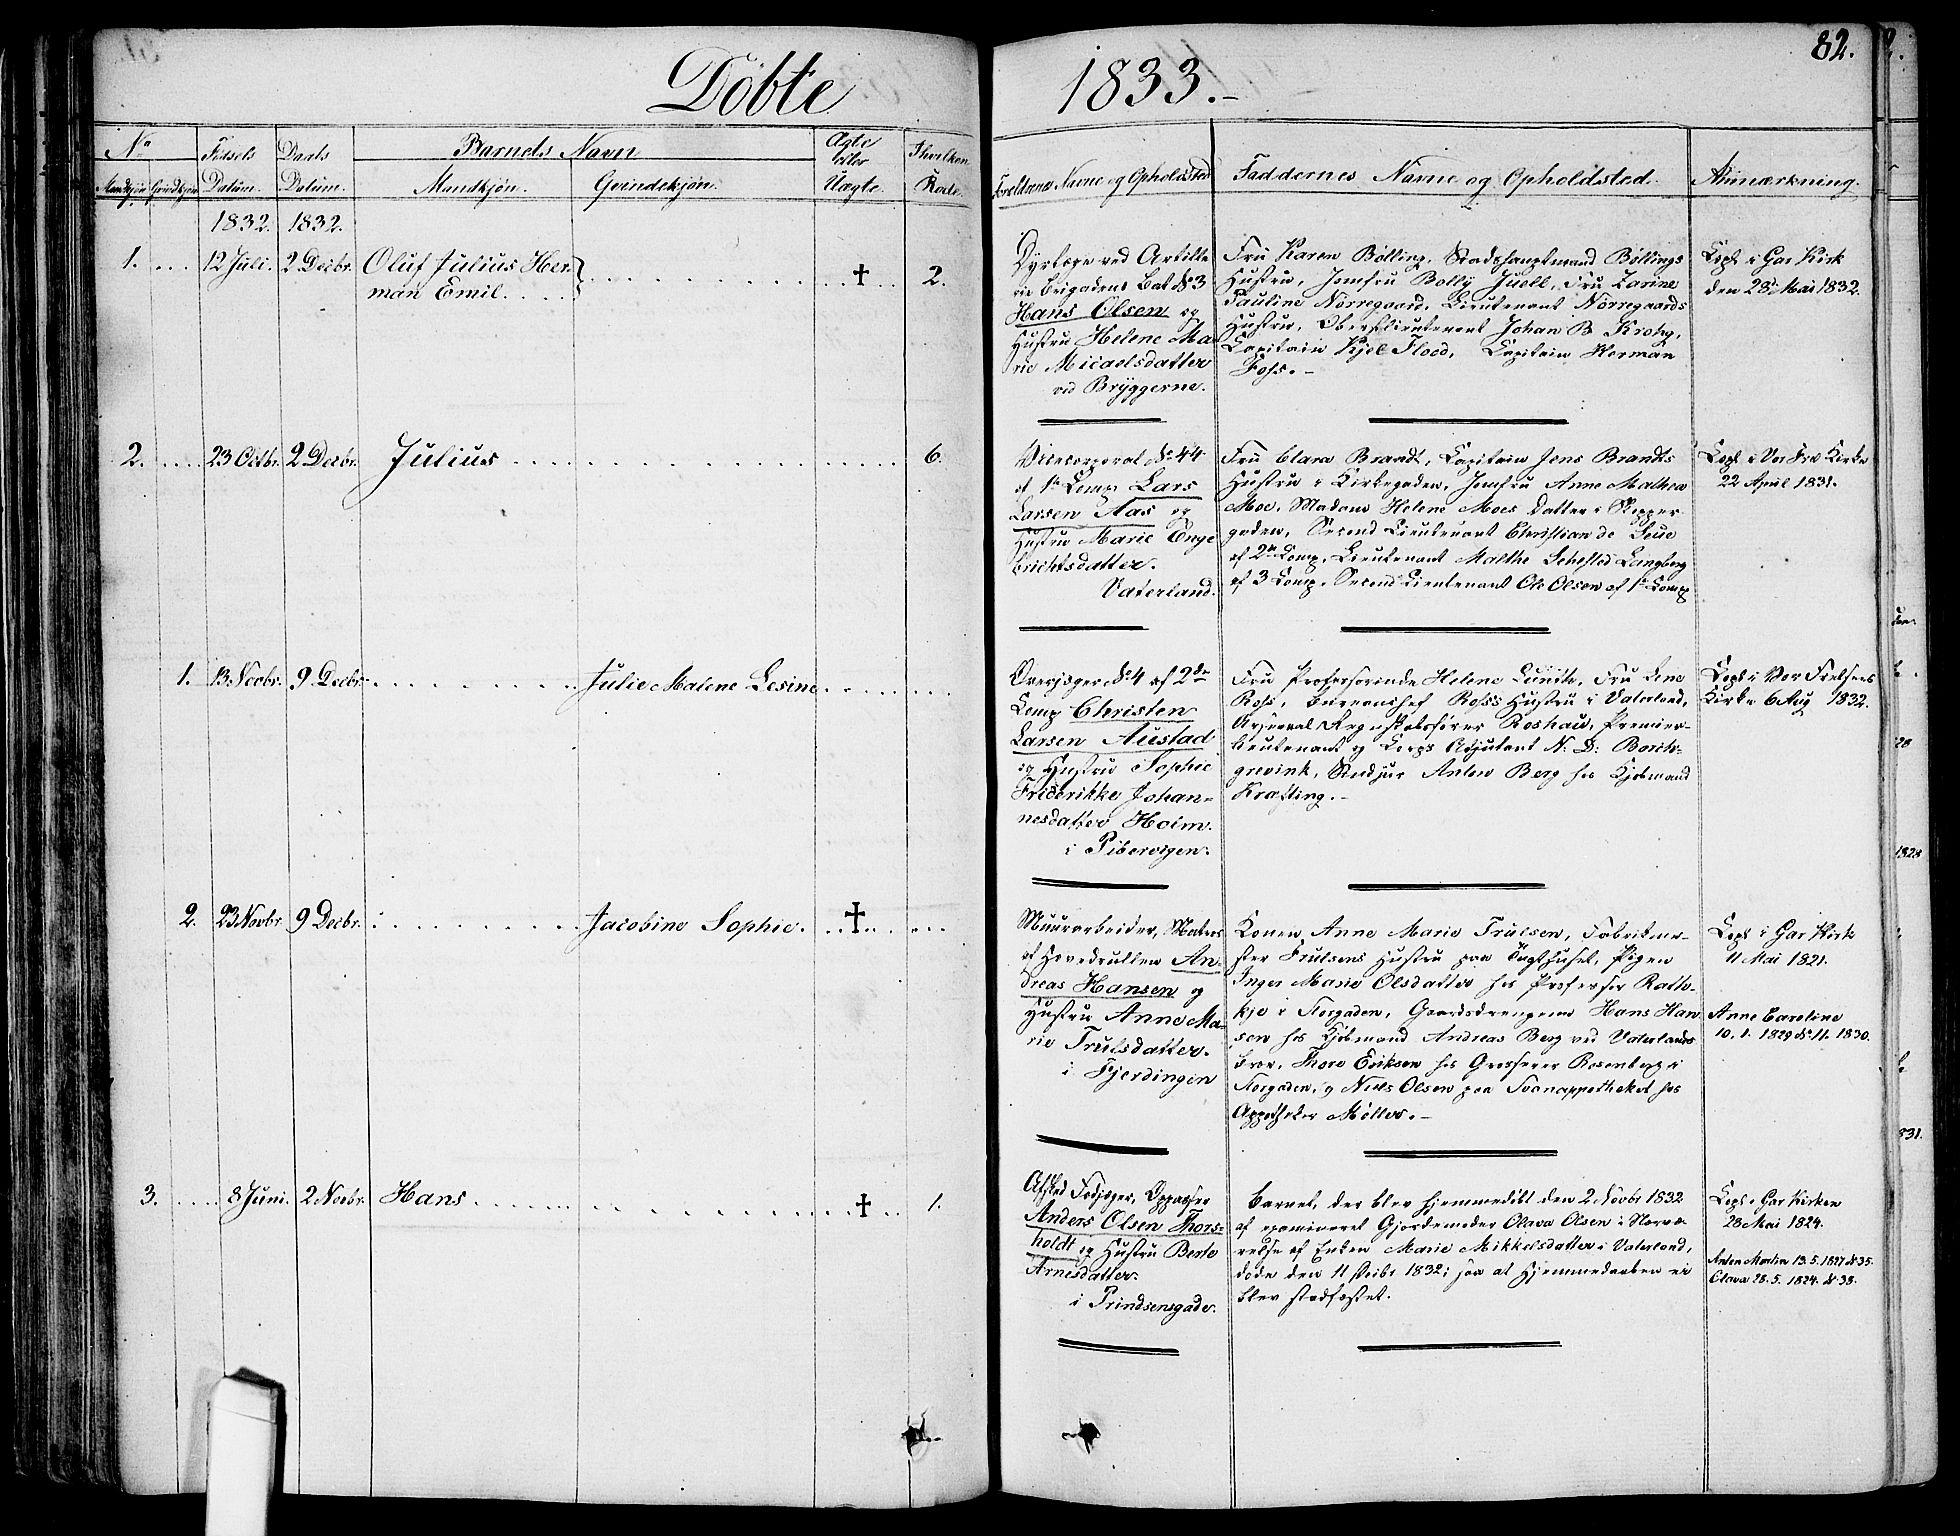 Döbte 1833.
82.
No
Födsels Daabs Barnets Navn Ægte eller I hvilken
Mandkjön Qvindekjön Datum. Datum. Mandkjön. Qvindekjön. Uægte. Rode.
Foreldrenes Navne og Opholdssted Faddernes Navne og Opholdssted. Anmærkning.
1832. 1832.
1. 12 Juli. 2 Decbr. Oluf Julius Her-
man Emil. † 2.
Dyrlæge ved Artille
rie Brigadens Bat No 3
Hans Olsen og
Hustru Helene Ma
rie Micaelsdatter
ved Bryggerne.
Fru Karen Bölling, Stadshauptmand Böllings
Hustru, Jomfru Bolly Juell, Fru Larine
Pauline Nörregaard, Lieutenant Nörregaards
Hustru, Oberstlieutenant Johan B Krohg,
Capitain Kjel Flood, Capitain Herman
Foss.-
Copl i Gar Kirk
den 28 Mai 1832.
2. 23 Octbr. 2 Decbr. Julius 6.
Vicecorporal No 44
af 1te Comp Lars
Larsen Aas og
Hustru Marie Enge
brichtsdatter.
Vaterland.
Fru Clara Brandt, Capitain Jens Brandts
Hustru i Kirkegaden, Jomfru Anne Mathea
Moe, Madame Helene Moes Datter i Skipper
gaden, Second Lieutenant Christian de Seue
af 2n Comp, Lieutenant Malthe Sehested Langberg
af 3 Comp, Second Lieutenant Ole Olsen af 1te Comp
Copl i Vor Frs Kirke
22 April 1831.
1. 13 Novbr. 9 Decbr. Julie Malene Lesine
Overjæger No 4 af 2de
Comp Christen
Larsen Austad
og Hustru Sophie
Friderikke Johan-
nesdatter Holm.
i Pibervigen.
Fru Professorinde Helene Lunith, Fru Line
Ross, Bureauchef Ross's Hustru i Vaterland,
Arsenal Regnskabsförer Roshau, Premier-
lieutenant og Corps Adjutant N: D: Borch-
grevink, Studjus Anton Berg hos Kjöbmand
Kræfting.-
Copl i Vor Frelsers
Kirke 6 Aug 1832.
2. 23 Novbr 9 Decbr. Jacobine Sophie. †
Muurarbeider, Matros
af Hovedrullen An-
dreas Hansen og
Hustru Anne Ma-
rie Trulsdatter.
i Fjerdingen
Konen Anne Marie Trulsen, Fabrikme-
ster Trulsens Hustru paa Tugthuset, Pigen
Inger Marie Olsdatter hos Professor Rath-
kje i Storgaden, Gaardsdrengene Hans Han
sen hos Kjöbmand Andreas Berg ved Vaterlands
Broe, Thore Eriksen hos Grosserer Rosenberg i
Storgaden, og Niels Olsen paa Svaneapotheket hos
Appotheker Möller.-
Copl i Gar Kirk
11 Mai 1821.
Anne Caroline
10. 1. 1829 No 11. 1830.
3. 8 Juni. 2 Novbr. Hans † 1.
Afsked Fodjæger, Oppasser
Anders Olsen Thors-
holdt og Hustru Berte
Arnesdatter.
i Prindsensgade.
Barnet, der blev hjemmedöbt den 2 Novbr 1832
af examineret Gjordemoder Olava Olsen i Nærvæ
relse af Enken Marie Mikkelsdatter i Vaterland,
döde den 11 Decbr 1832; saa at Hjemmedaaben ei
blev stadfæstet.
Copl i Gar Kirken
28 Mai 1824.
Anton Martin 13. 5. 1827 No 35.
Olava 28. 5. 1824. No 38.